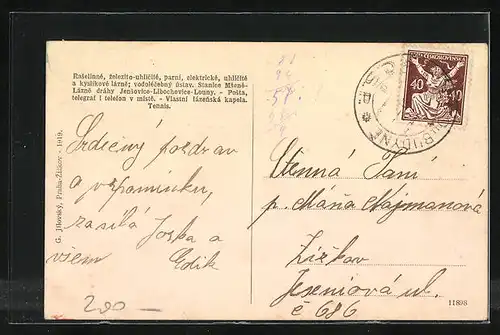 Rašelinné, železito-uhličité, parní, elektrické, uhličité
a kyslíkové lázně; vodoléčebný ústav. Stanice Mšené-
Lázně dráhy Jenšovice-Libochovice-Louny. - Pošta,
telegraf i telefon v místě. - Vlastní lázeňská kapela.
Tennis.
Srdečný pozdrav
a vzpomínku,
zasílá Joska a
všem Edik
200
G. Jilovský, Praha-Žižkov - 1919.
ČESKOSLOVENSKÁ
40 40
Ctěnná Paní
p. Máňa Najmanová
Žižkov
Jeseniová ul.
č 686
11898